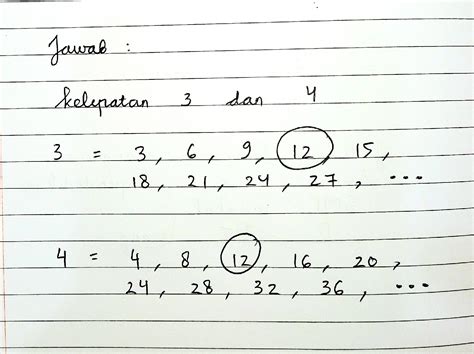 Jawab :
kelipatan 3 dan 4
3 = 3, 6, 9, 12, 15,
18, 21, 24, 27, ...
4 = 4, 8, 12, 16, 20,
24, 28, 32, 36, ...